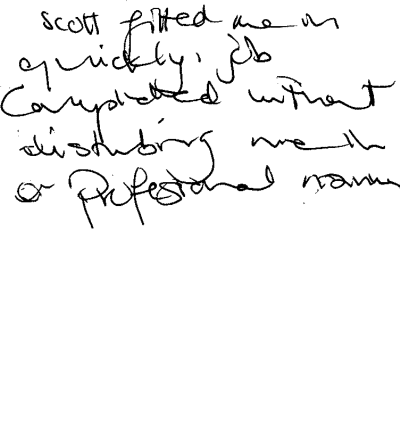 Scott fitted me in
quickly, job
Completed without
disturbing me in
a Professional manner